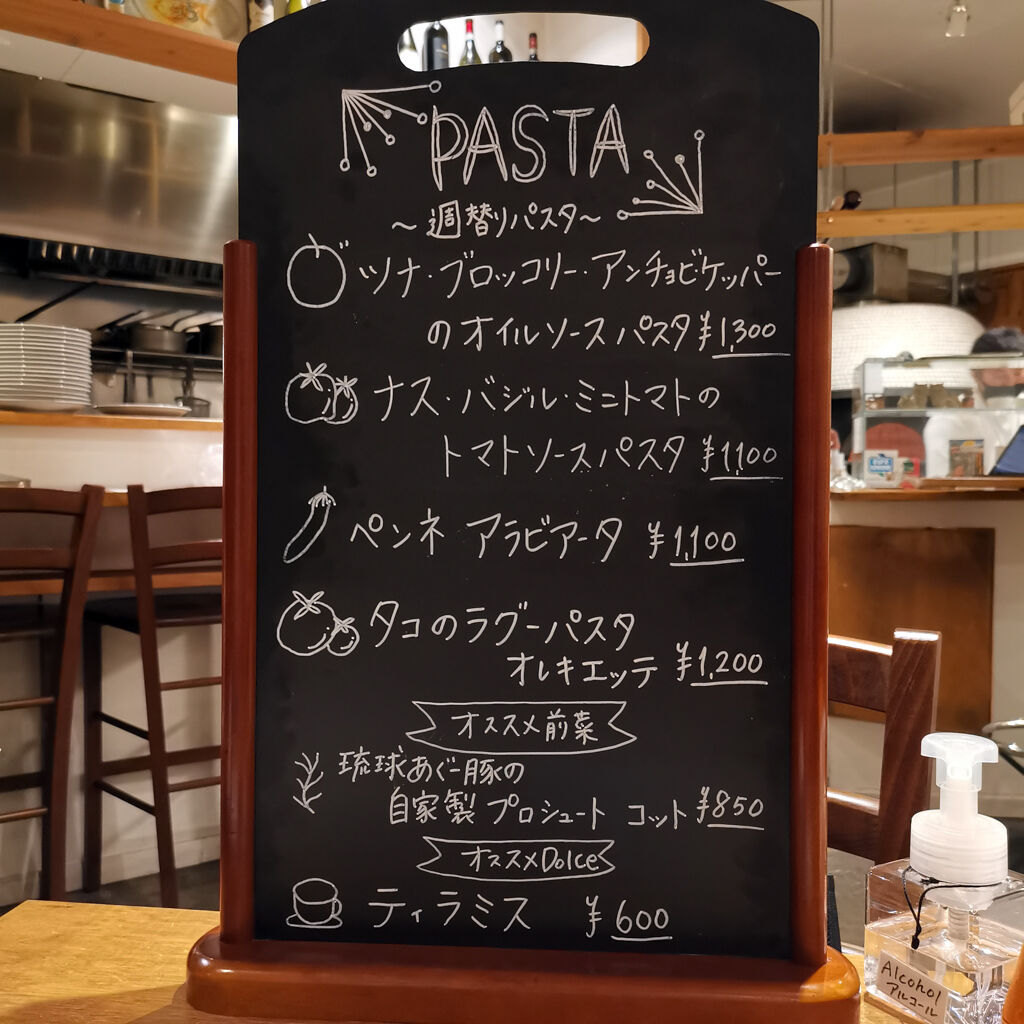 PASTA
～週替りパスタ～
ツナ・ブロッコリー・アンチョビ・ケッパー
のオイルソースパスタ ¥1,300
ナス・バジル・ミニトマトの
トマトソースパスタ ¥1,100
ペンネ アラビアータ ¥1,100
タコのラグーパスタ
オレキエッテ ¥1,200
オススメ前菜
琉球あぐー豚の
自家製 プロシュート コット ¥850
オススメDolce
ティラミス ¥600
Alcohol
アルコール